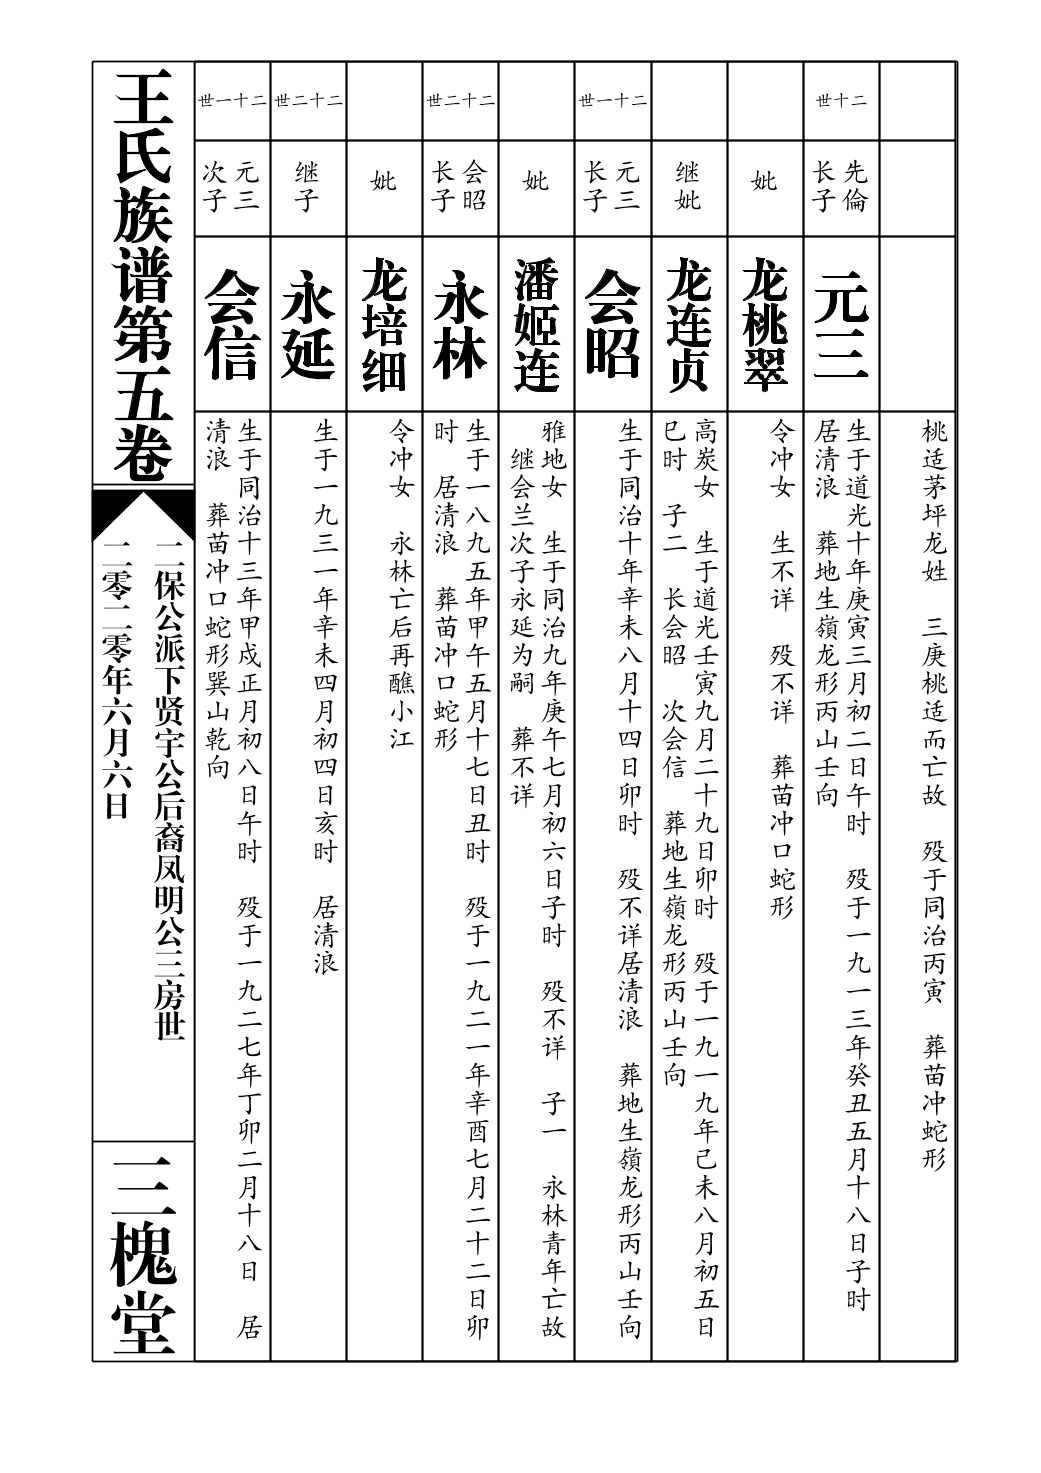 桃适茅坪龙姓　三庚桃适而亡故　殁于同治丙寅　葬苗冲蛇形
二十世
先倫
长子
元三
生于道光十年庚寅三月初二日午时　殁于一九一三年癸丑五月十八日子时
居清浪　葬地生嶺龙形丙山壬向
妣
龙桃翠
令冲女　生不详　殁不详　葬苗冲口蛇形
继妣
龙连贞
高炭女　生于道光壬寅九月二十九日卯时　殁于一九一九年己未八月初五日
巳时　子二　长会昭　次会信　葬地生嶺龙形丙山壬向
二十一世
元三
长子
会昭
生于同治十年辛未八月十四日卯时　殁不详居清浪　葬地生嶺龙形丙山壬向
妣
潘姬连
雅地女　生于同治九年庚午七月初六日子时　殁不详　子一　永林青年亡故
继会兰次子永延为嗣　葬不详
二十二世
会昭
长子
永林
生于一八九五年甲午五月十七日丑时　殁于一九二一年辛酉七月二十二日卯
时　居清浪　葬苗冲口蛇形
妣
龙培细
令冲女　永林亡后再醮小江
二十二世
继子
永延
生于一九三一年辛未四月初四日亥时　居清浪
二十一世
元三
次子
会信
生于同治十三年甲戌正月初八日午时　殁于一九二七年丁卯二月十八日　居
清浪　葬苗冲口蛇形巽山乾向
王氏族谱第五卷
二保公派下贤宇公后裔凤明公三房世
二零二零年六月六日
三槐堂